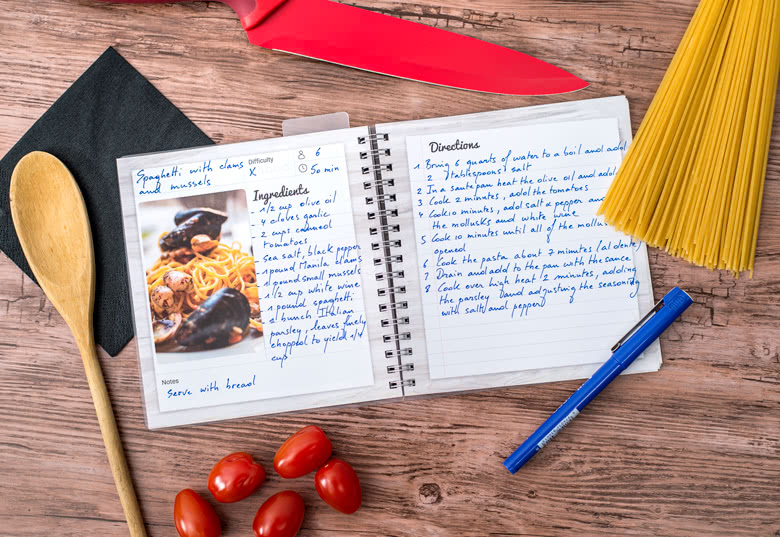 Spaghetti with clams
and mussels
Difficulty
X
6
50 min
Ingredients
- 1/2 cup olive oil
- 4 cloves garlic
- 2 cups canned
tomatoes
- sea salt, black pepper
- 1 pound Manila clams
- 1 pound small mussels
- 1/2 cup white wine
- 1 pound spaghetti
- 1 bunch Italian
parsley, leaves finely
chopped to yield 1/4
cup
Notes
Serve with bread
Directions
1 Bring 6 quarts of water to a boil and add
2 tablespoons salt
2 In a sautepan heat the olive oil and add
3 Cook 2 minutes, add the tomatoes
4 Cook 10 minutes, add salt & pepper and
the mollusks and white wine
5 Cook 10 minutes until all of the mollus
opened
6 Cook the pasta about 7 minutes (al dente)
7 Drain and add to the pan with the sauce
8 Cook over high heat 1/2 minutes, adding
the parsley and adjusting the seasoning
with salt and pepper